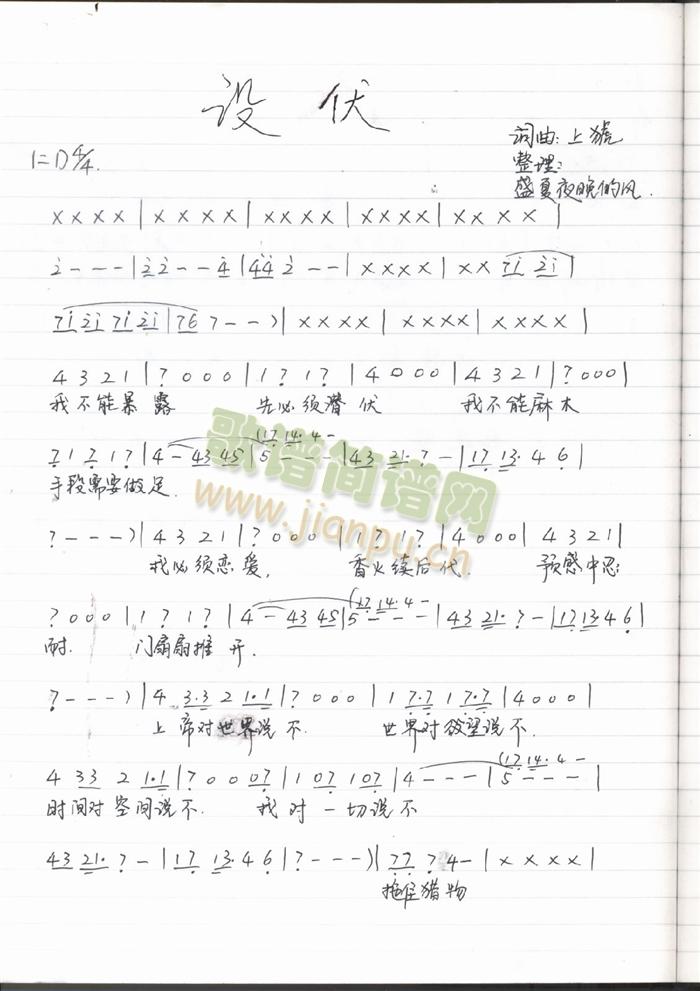 设 伏
词曲:上猇
1=D 4/4.
整理:
盛夏夜晚的风.
x x x x | x x x x | x x x x | x x x x | x x x x |
2 - - - | 2 2 - - 4 | 4 4 2 - - | x x x x | x x 7 1 2 1 |
7 1 2 1 7 1 2 1 | 7 6 7 - - ) | x x x x | x x x x | x x x x |
4 3 2 1 | 7 0 0 0 | 1 7 1 7 | 4 0 0 0 | 4 3 2 1 | 7 0 0 0 |
我不能暴露 先必须潜伏 我不能麻木
(17 14· 4 -
7 1 7 1 7 | 4 - 43 45 | 5 - - - | 43 21· 7 - | 17 13· 4 6 |
手段需要做足.
7 - - - ) | 4 3 2 1 | 7 0 0 0 | 1 7 1 7 | 4 0 0 0 | 4 3 2 1 |
我必须恋爱, 香火续后代. 预感中忍
(17 14· 4 -
7 0 0 0 | 1 7 1 7 | 4 - 43 45 | 5 - - - | 43 21· 7 - | 17 13· 4 6 |
耐. 门扇扇推开.
7 - - - ) | 4 3·3 2 1·1 | 7 0 0 0 | 1 7·7 1 7·7 | 4 0 0 0 |
上帝对世界说不. 世界对欲望说不.
(17 14· 4 -
4 33 2 1·1 | 7 0 0 07 | 1 07 1 07 | 4 - - - | 5 - - - |
时间对空间说不. 我对一切说不
43 21· 7 - | 17 13· 4 6 | 7 - - - ) | 77 7 4 - | x x x x |
拖住猎物
歌谱简谱网
www.jianpu.cn